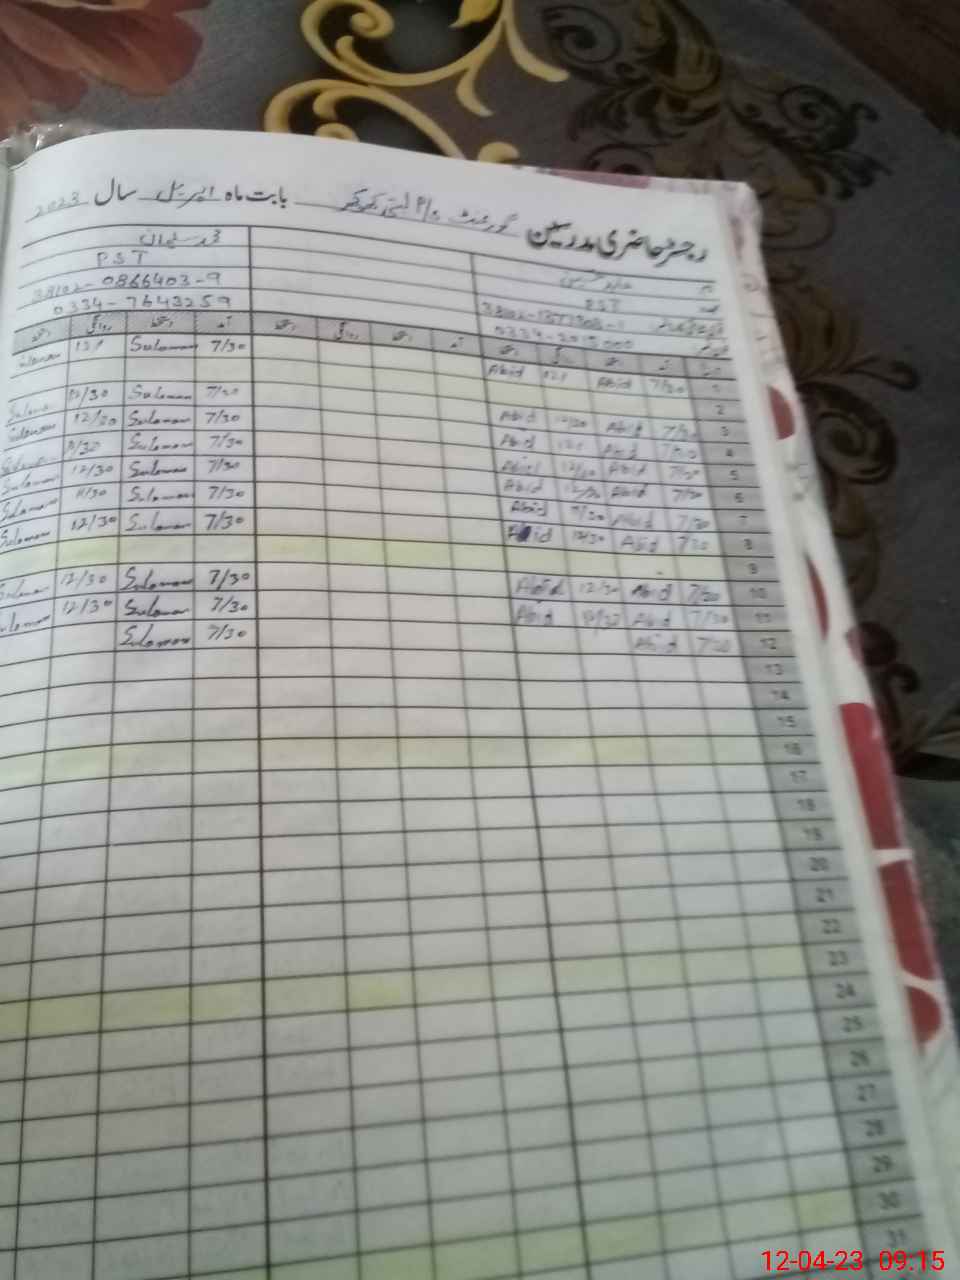 رجسٹر حاضری مدرسین گورنمنٹ بابت ماہ اپریل سال 2023
نام
PST
PST
0334-2015000
38102-0866403-9
0334-7643259
آمد دستخط روانگی دستخط آمد دستخط روانگی دستخط آمد دستخط روانگی دستخط
1 7/30 Abid 12/ Abid 7/30 Suleman 12/ Suleman
2
3 7/30 Abid 12/30 Abid 7/30 Suleman 12/30 Suleman
4 7/30 Abid 12/ Abid 7/30 Suleman 12/30 Suleman
5 7/30 Abid 12/30 Abid 7/30 Suleman Suleman
6 7/30 Abid 12/30 Abid 7/30 Suleman 12/30 Suleman
7 7/30 Abid Abid 7/30 Suleman Suleman
8 7/30 Abid 12/30 Abid 7/30 Suleman 12/30 Suleman
9
10 7/30 Abid 12/30 Abid 7/30 Suleman 12/30 Suleman
11 7/30 Abid Abid 7/30 Suleman 12/30 Suleman
12 7/30 Abid 7/30 Suleman
13
14
15
16
17
18
19
20
21
22
23
24
25
26
27
28
29
30
31
12-04-23 09:15